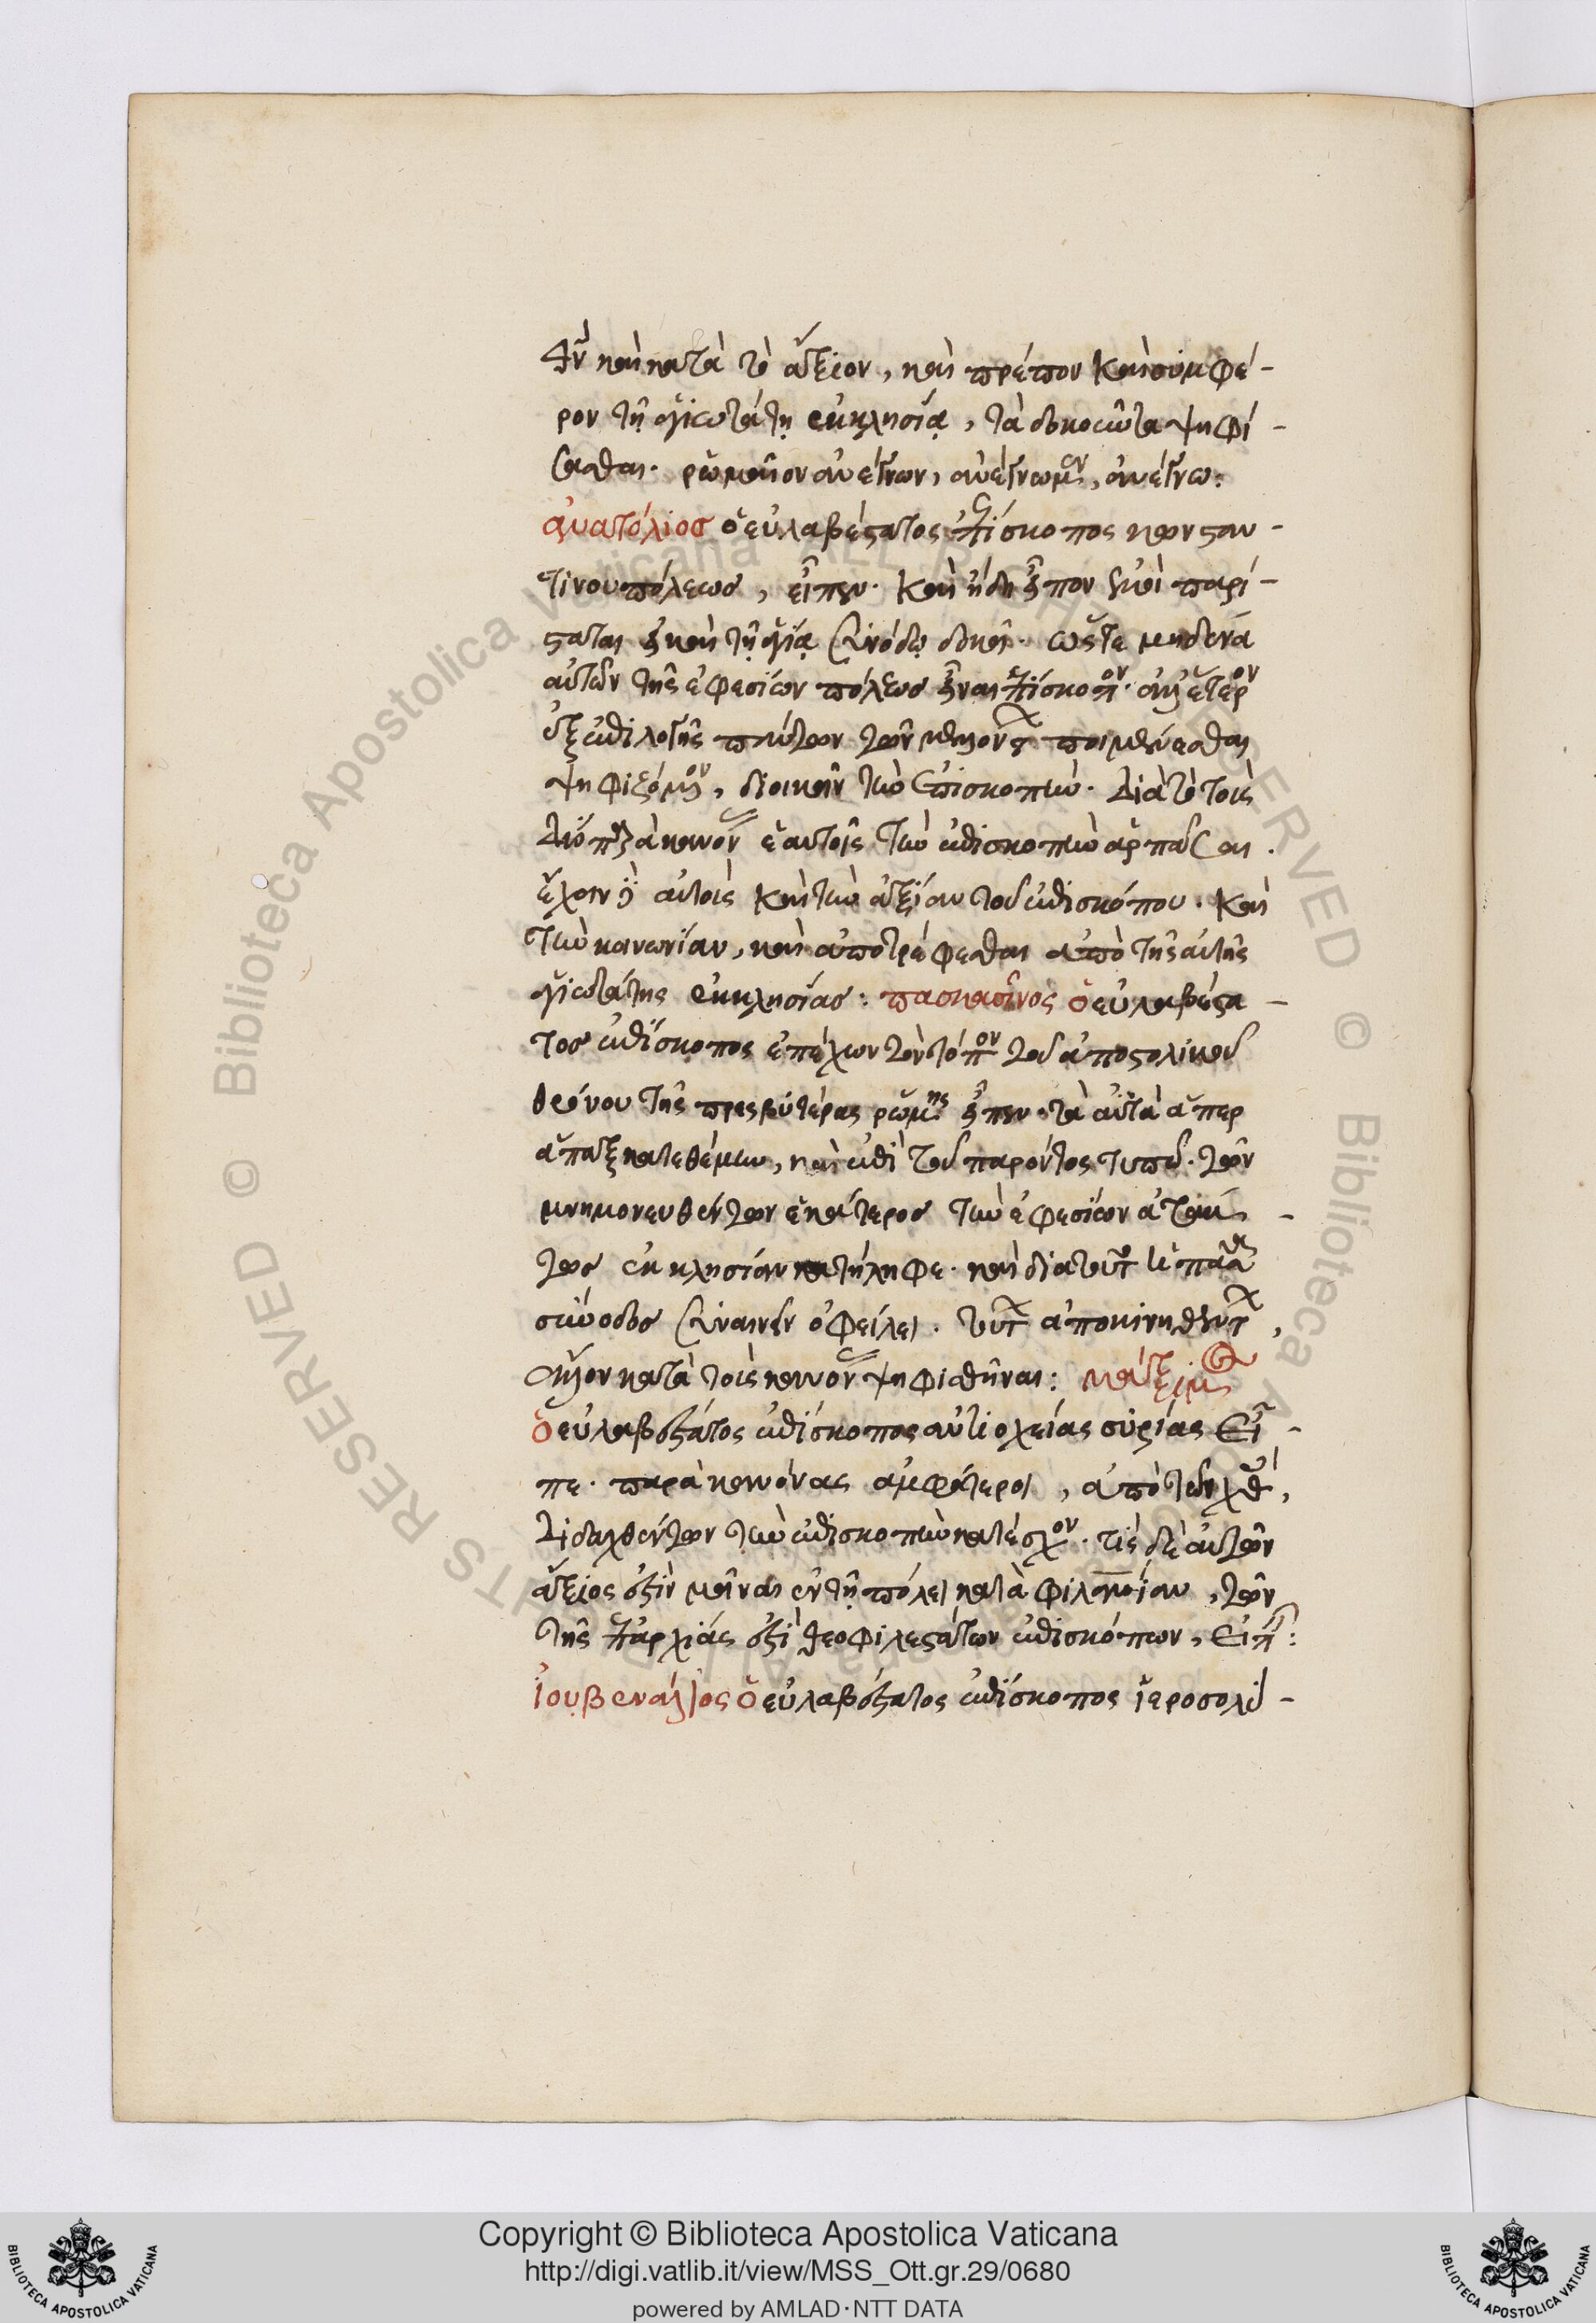 καὶ κατὰ τὸ ἄξιον, καὶ πρέπον καὶ συμφέ-
ρον τῇ ἁγιωτάτῃ ἐκκλησίᾳ, τὰ δοκοῦντα ψηφί-
σασθαι. ῥωμαῖον ἀνέγνων, ἀνέγνωμεν, ἀνέγνω:
ἀνατόλιος ὁ εὐλαβέστατος ἐπίσκοπος κωνσταν-
τινουπόλεως, εἶπεν. καὶ ἤδη εἶπον ἐμοὶ παρί-
σταται καὶ τῇ ἁγίᾳ συνόδῳ δοκεῖ. ὥστε μηδένα
αὐτῶν τῆς ἐφεσίων πόλεως εἶναι ἐπίσκοπον. ἀλλ' ἕτερον
ἐξ ἐπιλογῆς πάντων τῶν μελλόντων ποιμαίνεσθαι
ψηφιζόμενον, διοικεῖν τὴν ἐπισκοπήν. διὰ τὸ τοὺς
δύο παρὰ κανόνας ἑαυτοῖς τὴν ἐπισκοπὴν ἁρπάσαι.
ἔχειν δὲ αὐτοὺς καὶ τὴν ἀξίαν τοῦ ἐπισκόπου. καὶ
τὴν κοινωνίαν, καὶ ἀποτρέφεσθαι ἀπὸ τῆς αὐτῆς
ἁγιωτάτης ἐκκλησίας: πασκασῖνος ὁ εὐλαβέστα-
τος ἐπίσκοπος ἐπέχων τὸν τόπον τοῦ ἀποστολικοῦ
θρόνου τῆς πρεσβυτέρας ῥώμης εἶπεν. τὰ αὐτὰ ἅπερ
ἅπαξ κατεθέμην, καὶ ἐπὶ τοῦ παρόντος τυπῶ. τῶν
μνημονευθέντων ἑκάτερος τὴν ἐφεσίων ἀτάκ-
τως ἐκκλησίαν κατήληφε. καὶ διὰ τοῦτο ἡ ἅπασα
σύνοδος συναινεῖν ὀφείλει. τούτων ἀποκινηθέντων,
ἄλλον κατὰ τοὺς κανόνας ψηφισθῆναι: μάξιμος
ὁ εὐλαβέστατος ἐπίσκοπος ἀντιοχείας συρίας εἶ-
πε. παρὰ κανόνας ἀμφότεροι, ἀπὸ τῶν χθὲς
διδαχθέντων τὴν ἐπισκοπὴν κατέσχον. τίς δὲ αὐτῶν
ἄξιός ἐστιν μεῖναι ἐν τῇ πόλει κατὰ φιλανθρωπίαν, τῶν
τῆς ἐπαρχίας ἐστὶ θεοφιλεστάτων ἐπισκόπων, εἰπεῖν:
ἰουβενάλιος ὁ εὐλαβέστατος ἐπίσκοπος ἱεροσολύ-
Copyright © Biblioteca Apostolica Vaticana
http://digi.vatlib.it/view/MSS_Ott.gr.29/0680
powered by AMLAD·NTT DATA